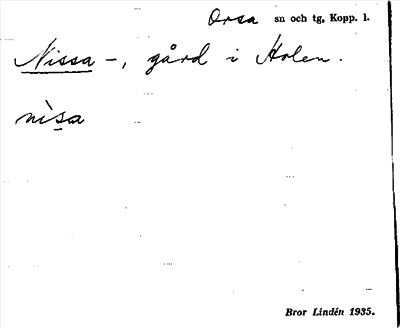 Orsa sn och tg, Kopp. l.
Nissa -, gård i Holen.
nìs̲a
Bror Lindén 1935.